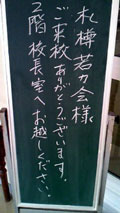 札樽若力会様
ご来校ありがとうございます。
2階 校長室へお越しください。